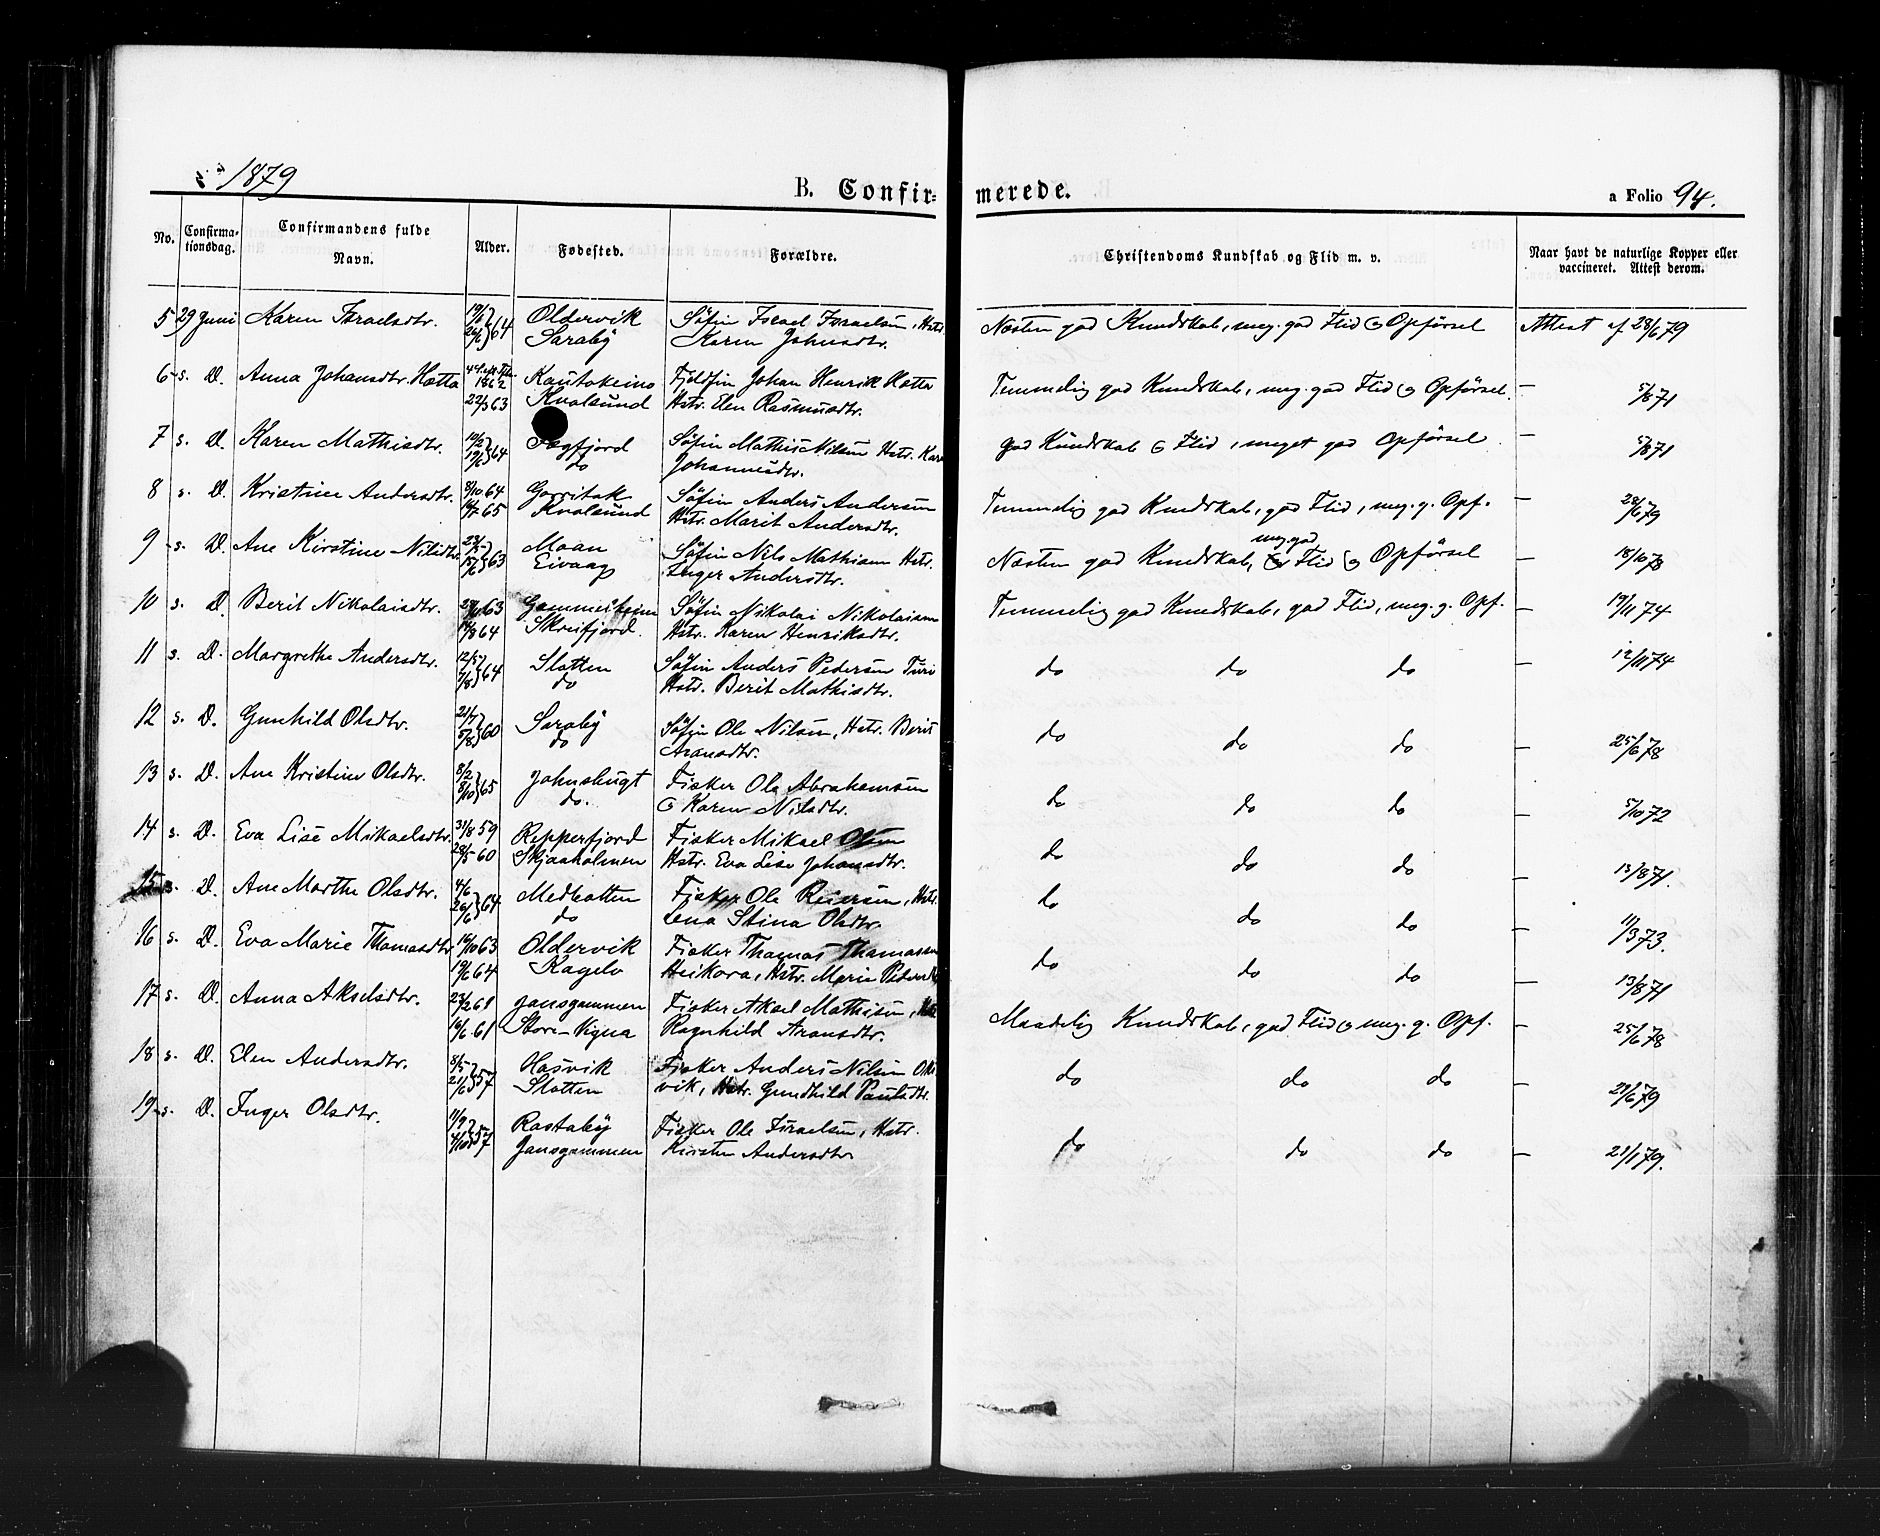 1879
B. Confir-
merede.
a Folio 94.
No.
Confirma-
tionsdag.
Confirmandens fulde
Navn.
Alder.
Fødested.
Forældre.
Christendoms Kundskab og Flid m. v.
Naar havt de naturlige Kopper eller
vaccineret. Attest derom.
5 29 Juni Karen Israelsdtr. 64 Oldervik Søfin Israel Israelsen, Hstr. Næsten god Kundskab, meg. god Flid & Opførsel Attest af 28/6 79
Saraby Karen Johnsdtr.
6 s. D. Anna Johansdtr. Hætta 1862 Kautokeino Fjeldfin Johan Henrik Hætta Temmelig god Kundskab, meg. god Flid & Opførsel. — 5/8 71
22/3 63 Kvalsund Hstr. Elen Rasmusdtr.
7 s. D. Karen Mathisdtr. 64 fjord Søfin Mathis Nilsen Hstr. Karen god Kundskab & Flid, meget god Opførsel. — 5/8 71
do Johannesdtr.
8 s. D. Kristine Andersdtr. 8/10 64 Gorritak Søfin Anders Andersen Temmelig god Kundskab, god Flid, meg. g. Opf. — 28/6 79
65 Kvalsund Hstr. Marit Andersdtr.
9 s. D. Ane Kirstine Nilsdtr. 63 Moan Søfin Nils Mathisen Hstr. Næsten god Kundskab, meg. god Flid & Opførsel — 18/10 78
Eivaag Inger Andersdtr.
10 s. D. Berit Nikolaisdtr. 63 Søfin Nikolai Nikolaisen Temmelig god Kundskab, god Flid, meg. g. Opf. — 19/11 74
64 Skreifjord. Hstr. Karen Henriksdtr.
11 s. D. Margrethe Andersdtr. 12/5 64 Slotten Søfin Anders Pedersen Turi do do do — 12/11 74
7/8 do Hstr. Berit Mathisdtr.
12 s. D. Gunhild Olsdtr. 21/7 60 Saraby Søfin Ole Nilsen, Hstr. Berit do do do — 25/6 78
5/8 do Aronsdtr.
13 s. D. Ane Kristine Olsdtr. 8/2 65 Johnsbugt Fisker Ole Abrahamsen do do do — 5/10 72
8/10 do. & Karen Nilsdtr.
14 s. D. Eva Lise Mikaelsdtr. 31/8 59 Repperfjord Fisker Mikael Olsen do do do — 13/8 71.
28/5 60 Skjaaholmen Hstr. Eva Lise Johansdtr.
15 s. D. Ane Marthe Olsdtr. 4/6 64 Medbotten Fisker Ole Reiersen, Hstr. do do do — 11/3 73.
26/6 do Lena Stina Olsdtr.
16 s. D. Eva Marie Thomasdtr. 16/10 63 Oldervik Fisker Thomas Thomassen do do do — 13/8 71
19/6 64 Kagelv Heikora, Hstr. Marie Pedersdtr.
17 s. D. Anna Akselsdtr. 23/2 61 Jansgammen Fisker Aksel Mathisen, Hstr. Maadelig Kundskab, god Flid & meg. g. Opf. — 25/6 78
16/6 61 Store-Vigna Ragnhild Aronsdtr.
18 s. D. Elen Andersdtr. 8/5 57 Hasvik Fisker Anders Nilsen do do do — 28/6 79
21/6 Slotten vik, Hstr. Gundhild Paulsdtr.
19 s. D. Inger Olsdtr. 11/9 57 Rastaby Fisker Ole Israelsen, Hstr. do do do — 23/1 79.
4/10 Jansgammen Kirsten Andersdtr.